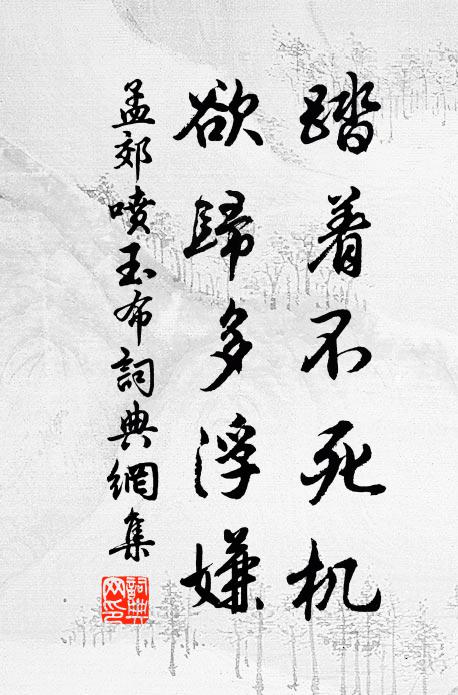 踏着不死机
欲歸多浮嫌
孟郊噴玉布詞典網集
詞典網印